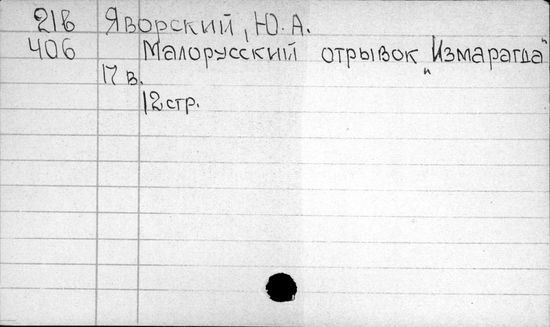 21в Яворский, Ю. А.
406 Малорусский отрывок „Измарагда"
17 в.
12 стр.